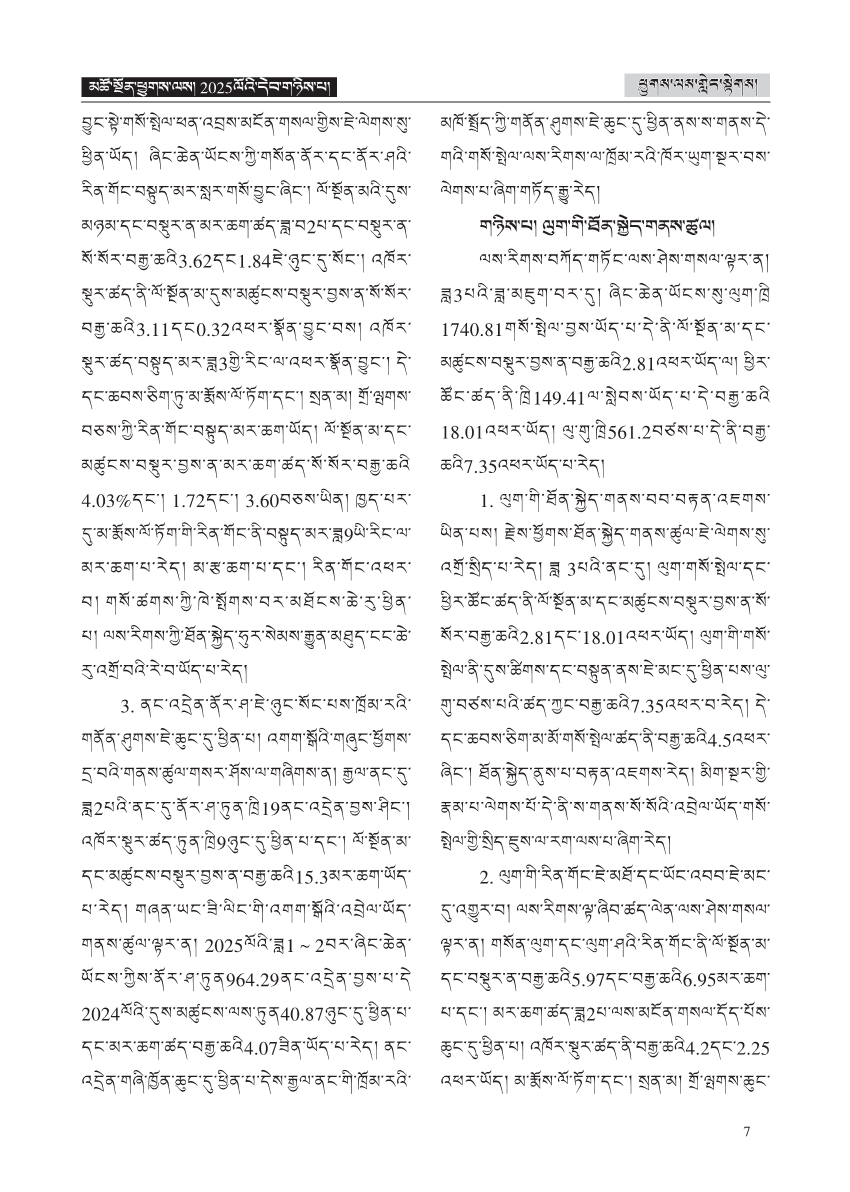 མཚོ་སྔོན་ཕྱུགས་ལས། 2025ལོའི་དེབ་གཉིས་པ།
ཕྱུགས་ལས་གླེང་སྟེགས།
བྱུང་སྟེ་གསོ་སྤེལ་ཕན་འབྲས་མངོན་གསལ་གྱིས་ཇེ་ལེགས་སུ་
ཕྱིན་ཡོད། ཞིང་ཆེན་ཡོངས་ཀྱི་གསོན་ནོར་དང་ནོར་ཤའི་
རིན་གོང་བསྟུད་མར་སླར་གསོ་བྱུང་ཞིང་། ལོ་སྔོན་མའི་དུས་
མཉམ་དང་བསྡུར་ན་མར་ཆག་ཚད་ཟླ་བ2པ་དང་བསྡུར་ན་
སོ་སོར་བརྒྱ་ཆའི3.62དང1.84ཇེ་ཉུང་དུ་སོང་། འཁོར་
སྡུར་ཚད་ནི་ལོ་སྔོན་མ་དུས་མཚུངས་བསྡུར་བྱས་ན་སོ་སོར་
བརྒྱ་ཆའི3.11དང0.32འཕར་སྣོན་བྱུང་བས། འཁོར་
སྡུར་ཚད་བསྟུད་མར་ཟླ3གྱི་རིང་ལ་འཕར་སྣོན་བྱུང་། དེ་
དང་ཆབས་ཅིག་ཏུ་མ་རྨོས་ལོ་ཏོག་དང་། སྲན་མ། གྲོ་ལྤགས་
བཅས་ཀྱི་རིན་གོང་བསྟུད་མར་ཆག་ཡོད། ལོ་སྔོན་མ་དང་
མཚུངས་བསྡུར་བྱས་ན་མར་ཆག་ཚད་སོ་སོར་བརྒྱ་ཆའི
4.03%དང་། 1.72དང་། 3.60བཅས་ཡིན། ཁྱད་པར་
དུ་མ་རྨོས་ལོ་ཏོག་གི་རིན་གོང་ནི་བསྟུད་མར་ཟླ9ཡི་རིང་ལ་
མར་ཆག་པ་རེད། མ་རྩ་ཆག་པ་དང་། རིན་གོང་འཕར་
བ། གསོ་ཚགས་ཀྱི་ཁེ་སྤོགས་བར་མཐོངས་ཆེ་རུ་ཕྱིན་
པ། ལས་རིགས་ཀྱི་ཐོན་སྐྱེད་ཧུར་སེམས་རྒྱུན་མཐུད་ངང་ཆེ་
རུ་འགྲོ་བའི་རེ་བ་ཡོད་པ་རེད།
3. ནང་འདྲེན་ནོར་ཤ་ཇེ་ཉུང་སོང་པས་ཁྲོམ་རའི་
གནོན་ཤུགས་ཇེ་ཆུང་དུ་ཕྱིན་པ། འགག་སྒོའི་གཞུང་ཕྱོགས་
དྲ་བའི་གནས་ཚུལ་གསར་ཤོས་ལ་གཞིགས་ན། རྒྱལ་ནང་དུ་
ཟླ2པའི་ནང་དུ་ནོར་ཤ་ཏུན་ཁྲི19ནང་འདྲེན་བྱས་ཤིང་།
འཁོར་སྡུར་ཚད་ཏུན་ཁྲི9ཉུང་དུ་ཕྱིན་པ་དང་། ལོ་སྔོན་མ་
དང་མཚུངས་བསྡུར་བྱས་ན་བརྒྱ་ཆའི15.3མར་ཆག་ཡོད་
པ་རེད། གཞན་ཡང་ཟི་ལིང་གི་འགག་སྒོའི་འབྲེལ་ཡོད་
གནས་ཚུལ་ལྟར་ན། 2025ལོའི་ཟླ1 ~ 2བར་ཞིང་ཆེན་
ཡོངས་ཀྱིས་ནོར་ཤ་ཏུན964.29ནང་འདྲེན་བྱས་པ་དེ་
2024ལོའི་དུས་མཚུངས་ལས་ཏུན40.87ཉུང་དུ་ཕྱིན་པ་
དང་མར་ཆག་ཚད་བརྒྱ་ཆའི4.07ཟིན་ཡོད་པ་རེད། ནང་
འདྲེན་གཞི་ཁྱོན་ཆུང་དུ་ཕྱིན་པ་དེས་རྒྱལ་ནང་གི་ཁྲོམ་རའི་
མཁོ་སྤྲོད་ཀྱི་གནོན་ཤུགས་ཇེ་ཆུང་དུ་ཕྱིན་ནས་ས་གནས་དེ་
གའི་གསོ་སྤེལ་ལས་རིགས་ལ་ཁྲོམ་རའི་ཁོར་ཡུག་སྔར་བས་
ལེགས་པ་ཞིག་གཏོད་རྒྱུ་རེད།
གཉིས་པ། ལུག་གི་ཐོན་སྐྱེད་གནས་ཚུལ།
ལས་རིགས་བཀོད་གཏོང་ལས་ཤེས་གསལ་ལྟར་ན།
ཟླ3པའི་ཟླ་མཇུག་བར་དུ། ཞིང་ཆེན་ཡོངས་སུ་ལུག་ཁྲི
1740.81གསོ་སྤེལ་བྱས་ཡོད་པ་དེ་ནི་ལོ་སྔོན་མ་དང་
མཚུངས་བསྡུར་བྱས་ན་བརྒྱ་ཆའི2.81འཕར་ཡོད་ལ། ཕྱིར་
ཚོང་ཚད་ནི་ཁྲི149.41ལ་སླེབས་ཡོད་པ་དེ་བརྒྱ་ཆའི
18.01འཕར་ཡོད། ལུ་གུ་ཁྲི561.2བཙས་པ་དེ་ནི་བརྒྱ་
ཆའི7.35འཕར་ཡོད་པ་རེད།
1. ལུག་གི་ཐོན་སྐྱེད་གནས་བབ་བརྟན་འཇགས་
ཡིན་པས། རྗེས་ཕྱོགས་ཐོན་སྐྱེད་གནས་ཚུལ་ཇེ་ལེགས་སུ་
འགྲོ་སྲིད་པ་རེད། ཟླ 3པའི་ནང་དུ། ལུག་གསོ་སྤེལ་དང་
ཕྱིར་ཚོང་ཚད་ནི་ལོ་སྔོན་མ་དང་མཚུངས་བསྡུར་བྱས་ན་སོ་
སོར་བརྒྱ་ཆའི2.81དང་18.01འཕར་ཡོད། ལུག་གི་གསོ་
སྤེལ་ནི་དུས་ཚིགས་དང་བསྟུན་ནས་ཇེ་མང་དུ་ཕྱིན་པས་ལུ་
གུ་བཙས་པའི་ཚད་ཀྱང་བརྒྱ་ཆའི7.35འཕར་བ་རེད། དེ་
དང་ཆབས་ཅིག་མ་མོ་གསོ་སྤེལ་ཚད་ནི་བརྒྱ་ཆའི4.5འཕར་
ཞིང་། ཐོན་སྐྱེད་ནུས་པ་བརྟན་འཇགས་རེད། མིག་སྔར་གྱི་
རྣམ་པ་ལེགས་པོ་དེ་ནི་ས་གནས་སོ་སོའི་འབྲེལ་ཡོད་གསོ་
སྤེལ་གྱི་སྲིད་ཇུས་ལ་རག་ལས་པ་ཞིག་རེད།
2. ལུག་གི་རིན་གོང་ཇེ་མཐོ་དང་ཡོང་འབབ་ཇེ་མང་
དུ་འགྱུར་བ། ལས་རིགས་ལྟ་ཞིབ་ཚད་ལེན་ལས་ཤེས་གསལ་
ལྟར་ན། གསོན་ལུག་དང་ལུག་ཤའི་རིན་གོང་ནི་ལོ་སྔོན་མ་
དང་བསྡུར་ན་བརྒྱ་ཆའི5.97དང་བརྒྱ་ཆའི6.95མར་ཆག་
པ་དང་། མར་ཆག་ཚད་ཟླ2པ་ལས་མངོན་གསལ་དོད་པོས་
ཆུང་དུ་ཕྱིན་པ། འཁོར་སྡུར་ཚད་ནི་བརྒྱ་ཆའི4.2དང་2.25
འཕར་ཡོད། མ་རྨོས་ལོ་ཏོག་དང་། སྲན་མ། གྲོ་ལྤགས་ཆུང་
7